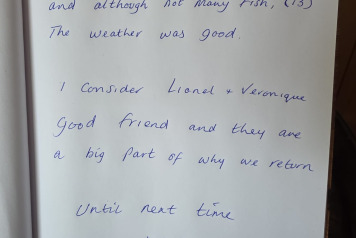 and although not many fish, (13)
The weather was good.
I consider Lionel + Veronique
good friend and they are
a big part of why we return
Until next time